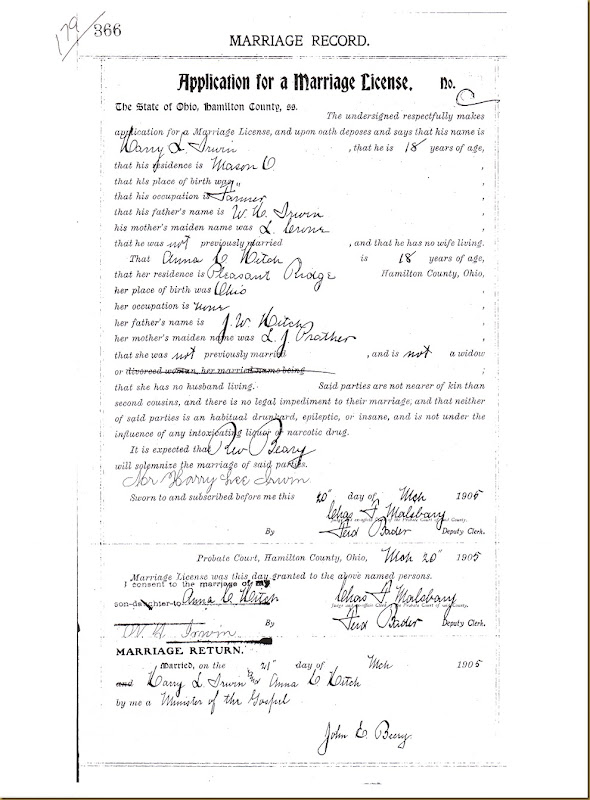 179
366
MARRIAGE RECORD.
Application for a Marriage License. No. C
The State of Ohio, Hamilton County, ss.
The undersigned respectfully makes
application for a Marriage License, and upon oath deposes and says that his name is
Harry L. Irwin, that he is 18 years of age,
that his residence is Mason O,
that his place of birth was " ,
that his occupation is Farmer,
that his father's name is W. H. Irwin,
his mother's maiden name was L. ,
that he was not previously married, and that he has no wife living.
That Anna C Hitch is 18 years of age,
that her residence is Pleasant Ridge Hamilton County, Ohio,
her place of birth was Ohio,
her occupation is none,
her father's name is J. W. Hitch,
her mother's maiden name was L. J. Prather,
that she was not previously married, and is not a widow
or divorced woman, her married name being ;
that she has no husband living. Said parties are not nearer of kin than
second cousins, and there is no legal impediment to their marriage, and that neither
of said parties is an habitual drunkard, epileptic, or insane, and is not under the
influence of any intoxicating liquor or narcotic drug.
It is expected that Rev Beary
will solemnize the marriage of said parties.
Mr Harry Lee Irwin
Sworn to and subscribed before me this 20" day of Mch 1905
Chas F. Malsbary
Judge and ex-officio Clerk of the Probate Court of said County.
By Ferd Bader Deputy Clerk.
Probate Court, Hamilton County, Ohio, Mch 20" 1905
Marriage License was this day granted to the above named persons.
I consent to the marriage of my
son-daughter-to Anna C Hitch
Chas F. Malsbary
Judge and ex-officio Clerk of the Probate Court of said County.
W. H. Irwin. By Ferd Bader Deputy Clerk.
MARRIAGE RETURN.
Married, on the 21" day of Mch 1905
and Harry L. Irwin and Anna C Hitch
by me a Minister of the Gospel
John E. Beery.